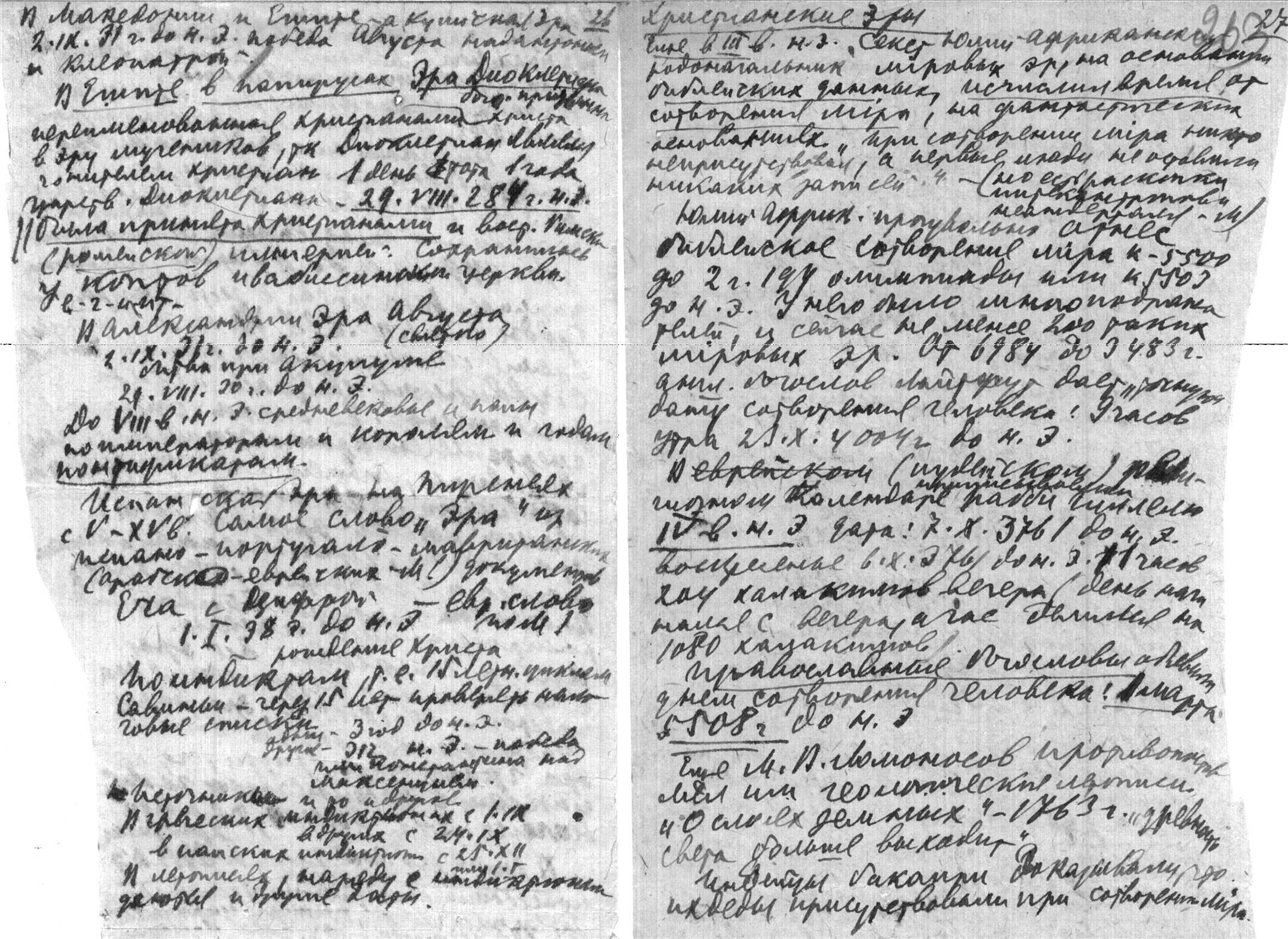 В Македонии и Египте акт. эра 26
2.IX.31 г. до н.э. победа Августа над Антонием
и Клеопатрой
В Египте в папирусах Эра Диоклетиана
переименованная христианами
в эру мучеников, тк Диоклетиан являлся
гонителем христиан 1 день Тота 1 года
царств. Диоклетиана - 29.VIII.284 г. н.э.
была принята христианами и вост. Римск
(ромейской) империей. Сохранилась
у коптов и в абиссинской церкви.
В Александрии Эра Августа
(светлого)
2.IX.31 г. до н.э.
битва при Акциуме
29.VIII.30 г. до н.э.
До VIII в. н.э. средневековье и папы
по императорам и королям и годам
понтификатам.
Испанская Эра на Пиренеях
с V-XV в. Самое слово "Эра" из
испано-португало-мавританских
(арабско-еврейских - М.) документов
с Цифрой - евр. слово
1.I.38 г. до н.э.
рождение Христа
По индиктам, т.е. 15 летн. циклам
- через 15 лет проверять нало-
говые списки
одни - 3 год до н.э.
другие - 312 н.э. - победа
имп Константина над
Максенцием.
Источники и то и другое
В греческих индиктионах с 1.IX
в других с 24.IX
в папских индиктион с 25.XII
или 1.I
В летописях, наряду с индиктионом
даются и другие даты.
Христианские Эры 27
Еще в III в. н.э. Секст Юлий Африканский
родоначальник мировых эр, на основании
библейских данных, исчислил время от
сотворения мiра, на фантастических
основаниях "при сотворении мiра никто
не присутствовал, а первые люди не оставили
никаких записей". - (но
- М)
Юлий Африк. произвольно отнес
библейское сотворение мiра к - 5500
до 2 г. 194 олимпиады или к 5503
до н.э. У него было много подража
телей, и сейчас не менее 200 таких
мiровых эр. От 6984 до 3483 г.
англ. богослов Лайтфут дает "точную
дату сотворения человека: 9 часов
утра 23.X.4004 г. до н.э.
В еврейском (иудейском) рели-
гиозном календаре приписываемом рабби Гиллелю
IV в. н.э дата: 7.X.3761 до н.э.
воскресенье 6.X.3761 до н.э. 11 часов
204 халакимов вечера (день начи
нался с вечера, а час делился на
1080 халакимов)
Православные богословы объявили
днем сотворения человека: 1 марта
5508 г до н.э
Еще М.В. Ломоносов противопоста
вил им геологические летописи
"О слоях земных" - 1763 г. "древность
света больше выходит"
Индейцы бакаири доказывали, что
их деды присутствовали при сотворении мiра.